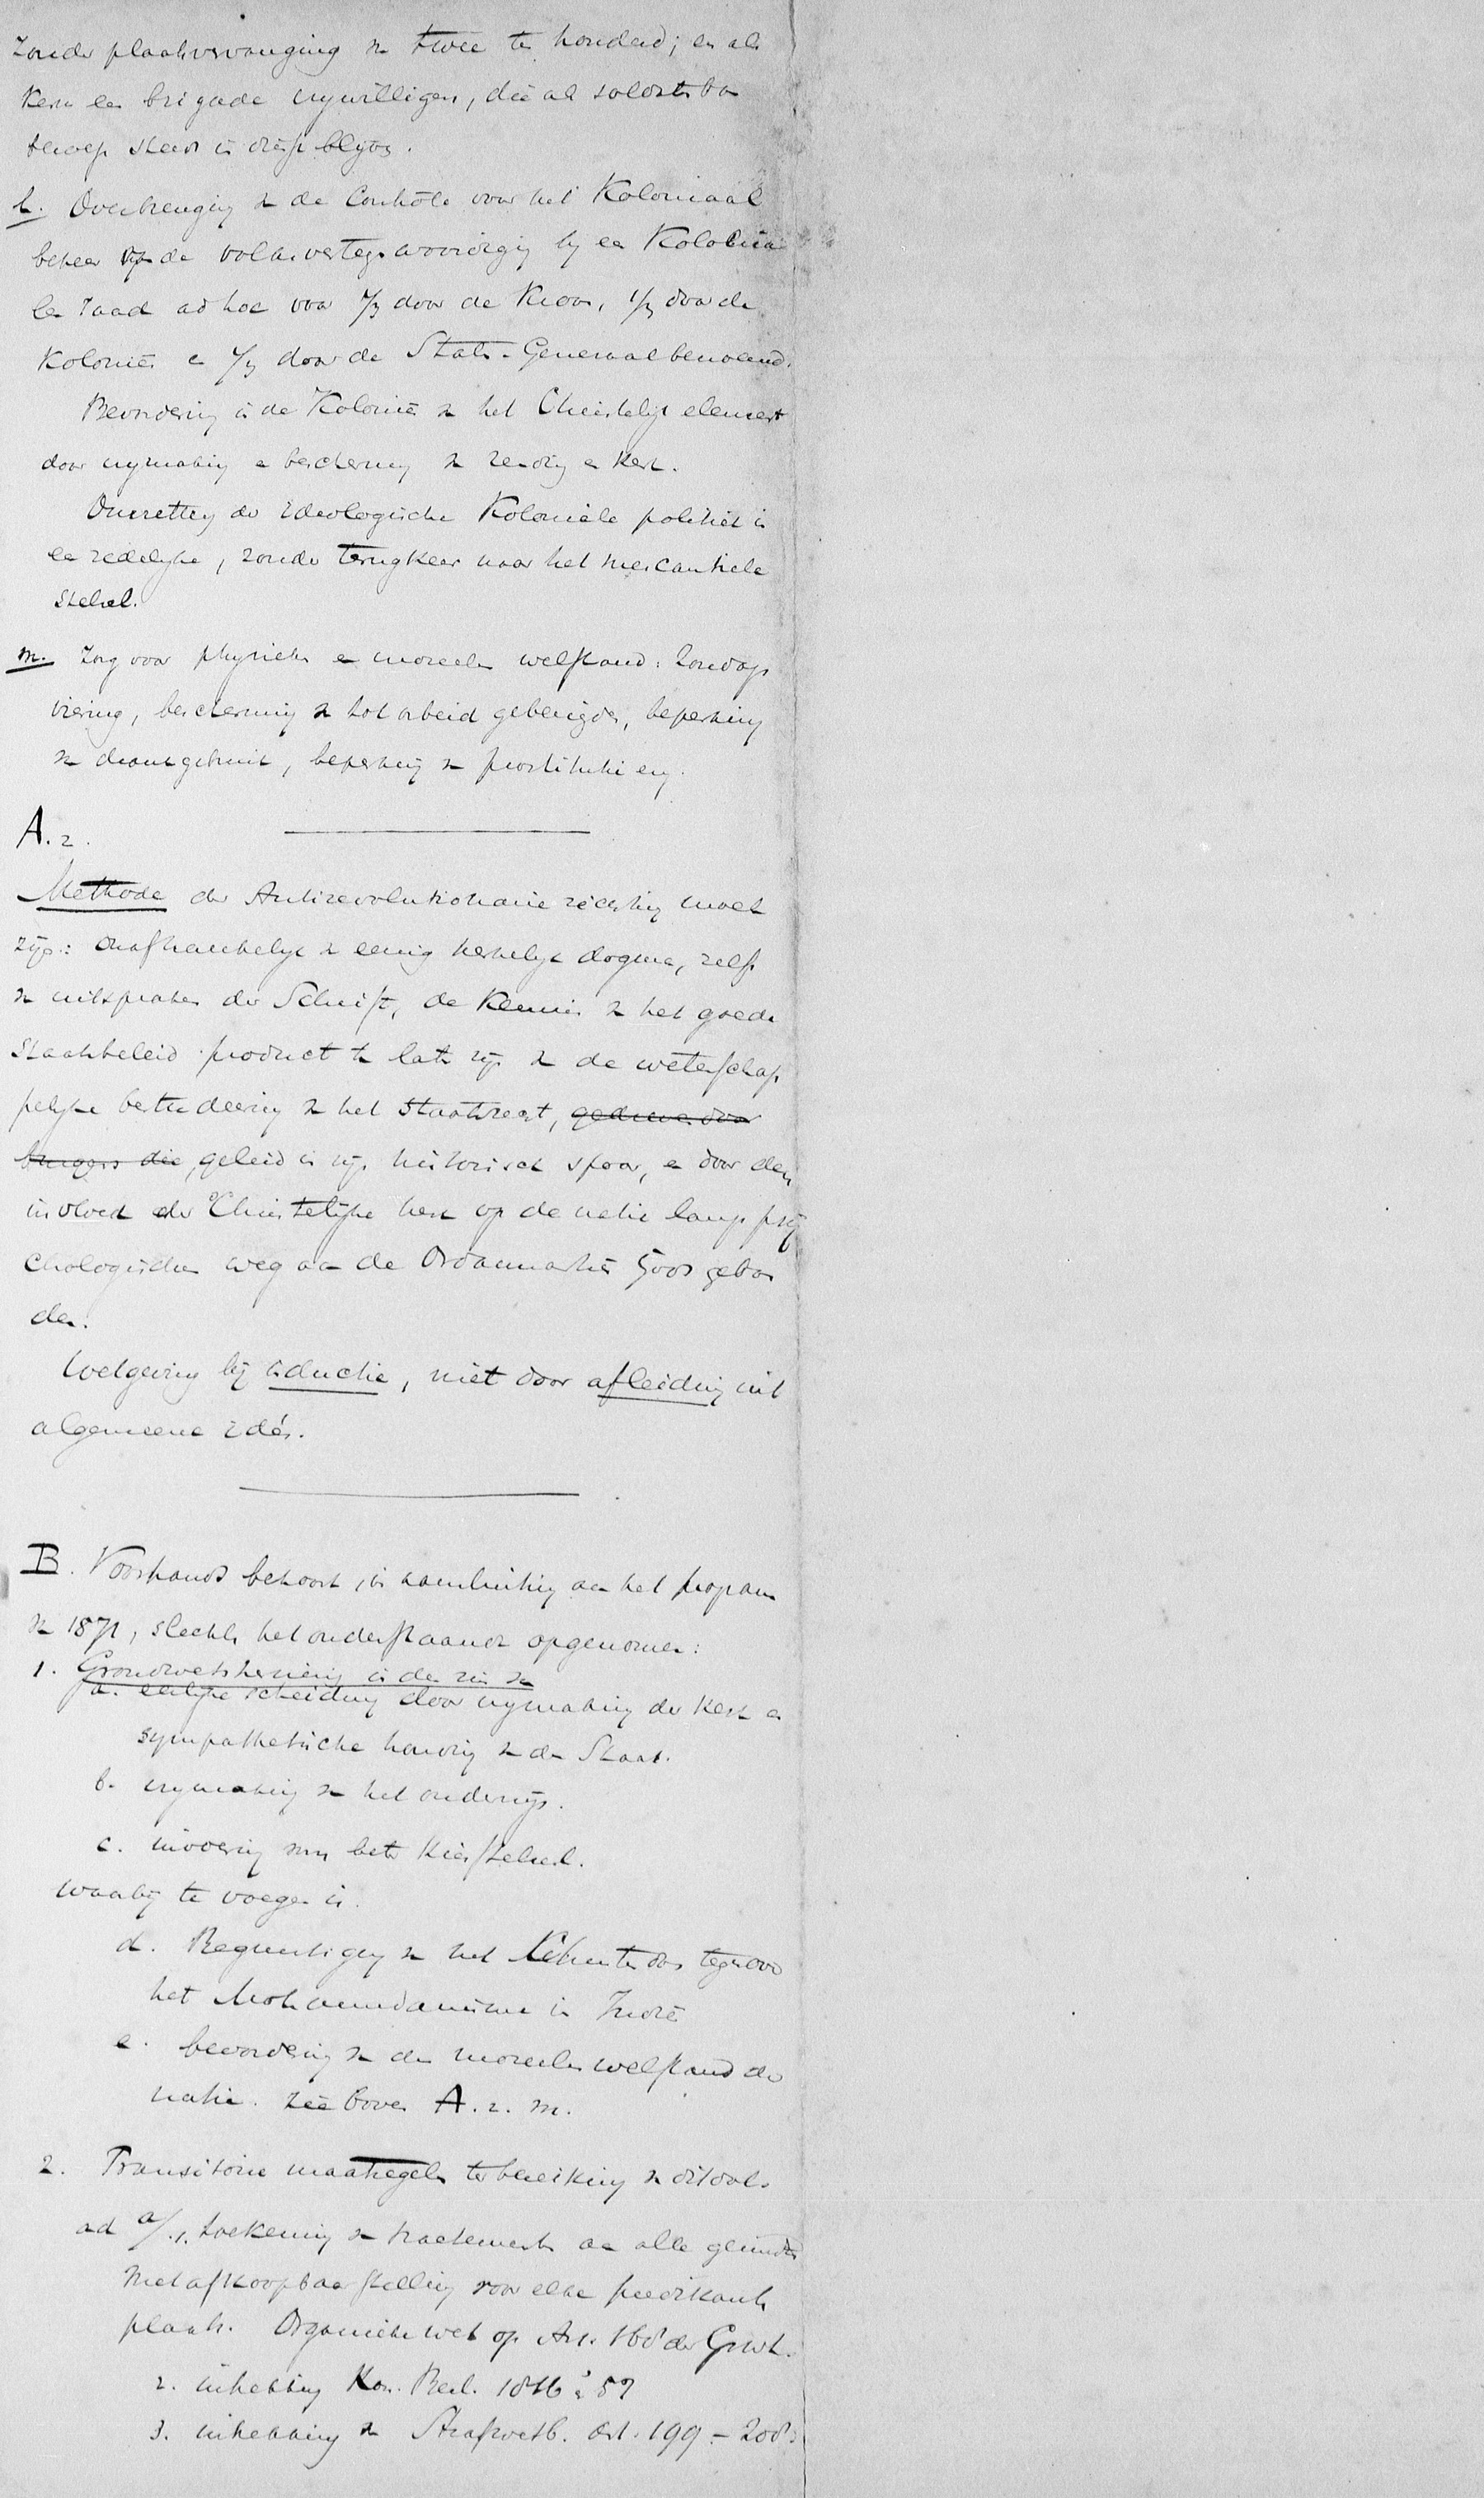 zonder plaatsvervanging v twee te honderd; en als
Kern een brigade vrywilligers, die als soldaten van
beroep steeds in dienst blyven.
l. Overbrenging v de Controle voor het Koloniaal
beheer op de volksvertegenwoordiging by een Kolonia
len raad ad hoc voor 1/3 door de Kroon, 1/3 door de
Kolonien en 1/3 door de Staten-Generaal benoemd.
Bevordering in de Kolonien v het Christelyk element
door vrymaking en bescherming v zending en kerk.
Omzetting der ideologische Koloniale politiek in
een zedelyke, zonder terugkeer naar het mercantiele
stelsel.
m. Zorg voor physieken en moreelen welstand: Zondags
viering, bescherming v tot arbeid gebezigden, beperking
v drankgebruik, beperking v prostitutie enz.
A. 2.
Methode der Antirevolutionaire richting moet
zijn: onafhankelyk v eenig kerkelyk dogma, zelfs
v uitspraken der Schrift, de kennis v het goede
Staatsbeleid product te laten zijn v de wetenschap
pelyke bestudeering v het Staatsrecht, gedreven door
burgers die, geleid in zijn historisch spoor, en door den
invloed der Christelyke kerk op de natie langs psy
chologischen weg aan de Ordonnantien Gods gebon
den.
Wetgeving bij inductie, niet door afleiding uit
algemeene ideën.
B. Voorshands behoort, in aansluiting aan het program
v 1871, slechts het onderstaande opgenomen:
1. Grondwetsherziening in den zin v
a. eerlyke scheiding door vrymaking der kerk en
sympathetische houding v den Staat.
b. vrymaking v het onderwijs.
c. invoering van beter kiesstelsel.
waarbij te voegen is.
d. Begunstiging v het Christendom tegenover
het Mohammedanisme in Indië
e. bevordering v den moreelen welstand der
natie. zie boven A. 2. m.
2. Transitoire maatregelen ter bereiking v dit doel.
ad a/.1. toekenning v tractementen aan alle gemeenten
met afkoopbaarstelling voor elke predikants
plaats. Organieke wet op Art. 168 der Grwt.
2. intrekking Kon. Besl. 1816 à 52
3. intrekking v Strafwetb. Art. 199 - 208